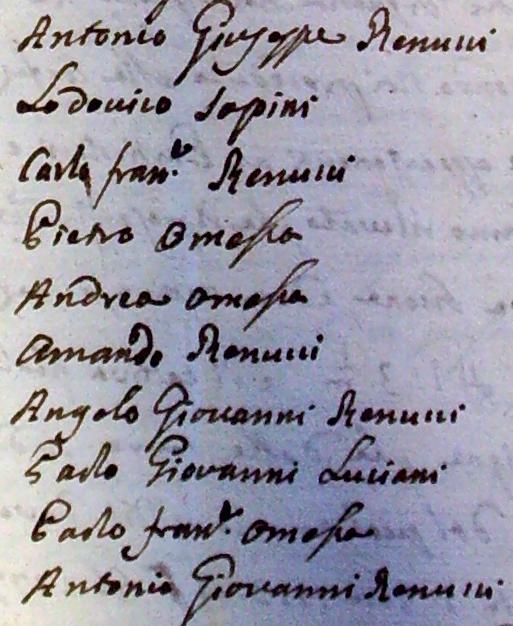 Antonio Giuseppe Renucci
Lodovico Sapini
Carlo fran.º Renucci
Pietro Omessa
Andrea Omessa
Amando Renucci
Angelo Giovanni Renucci
Paolo Giovanni Luciani
Paolo fran.º Omessa
Antonio Giovanni Renucci